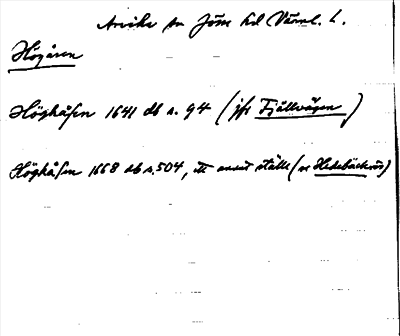 Arvika sn Jösse hd Värml. l.
Högåsen
Höghåsen 1641 db s. 94 (jfr Fjällvägen)
Höghåsen 1668 db s. 504, ett annat ställe (se Hedebäcks)